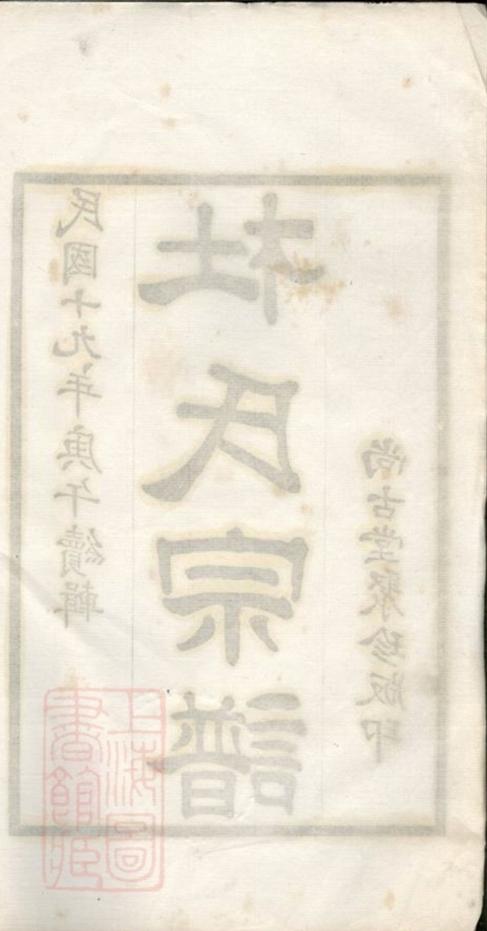 民國十九年庚午續輯
杜氏宗譜
尚古堂聚珍版印
上海圖書館藏